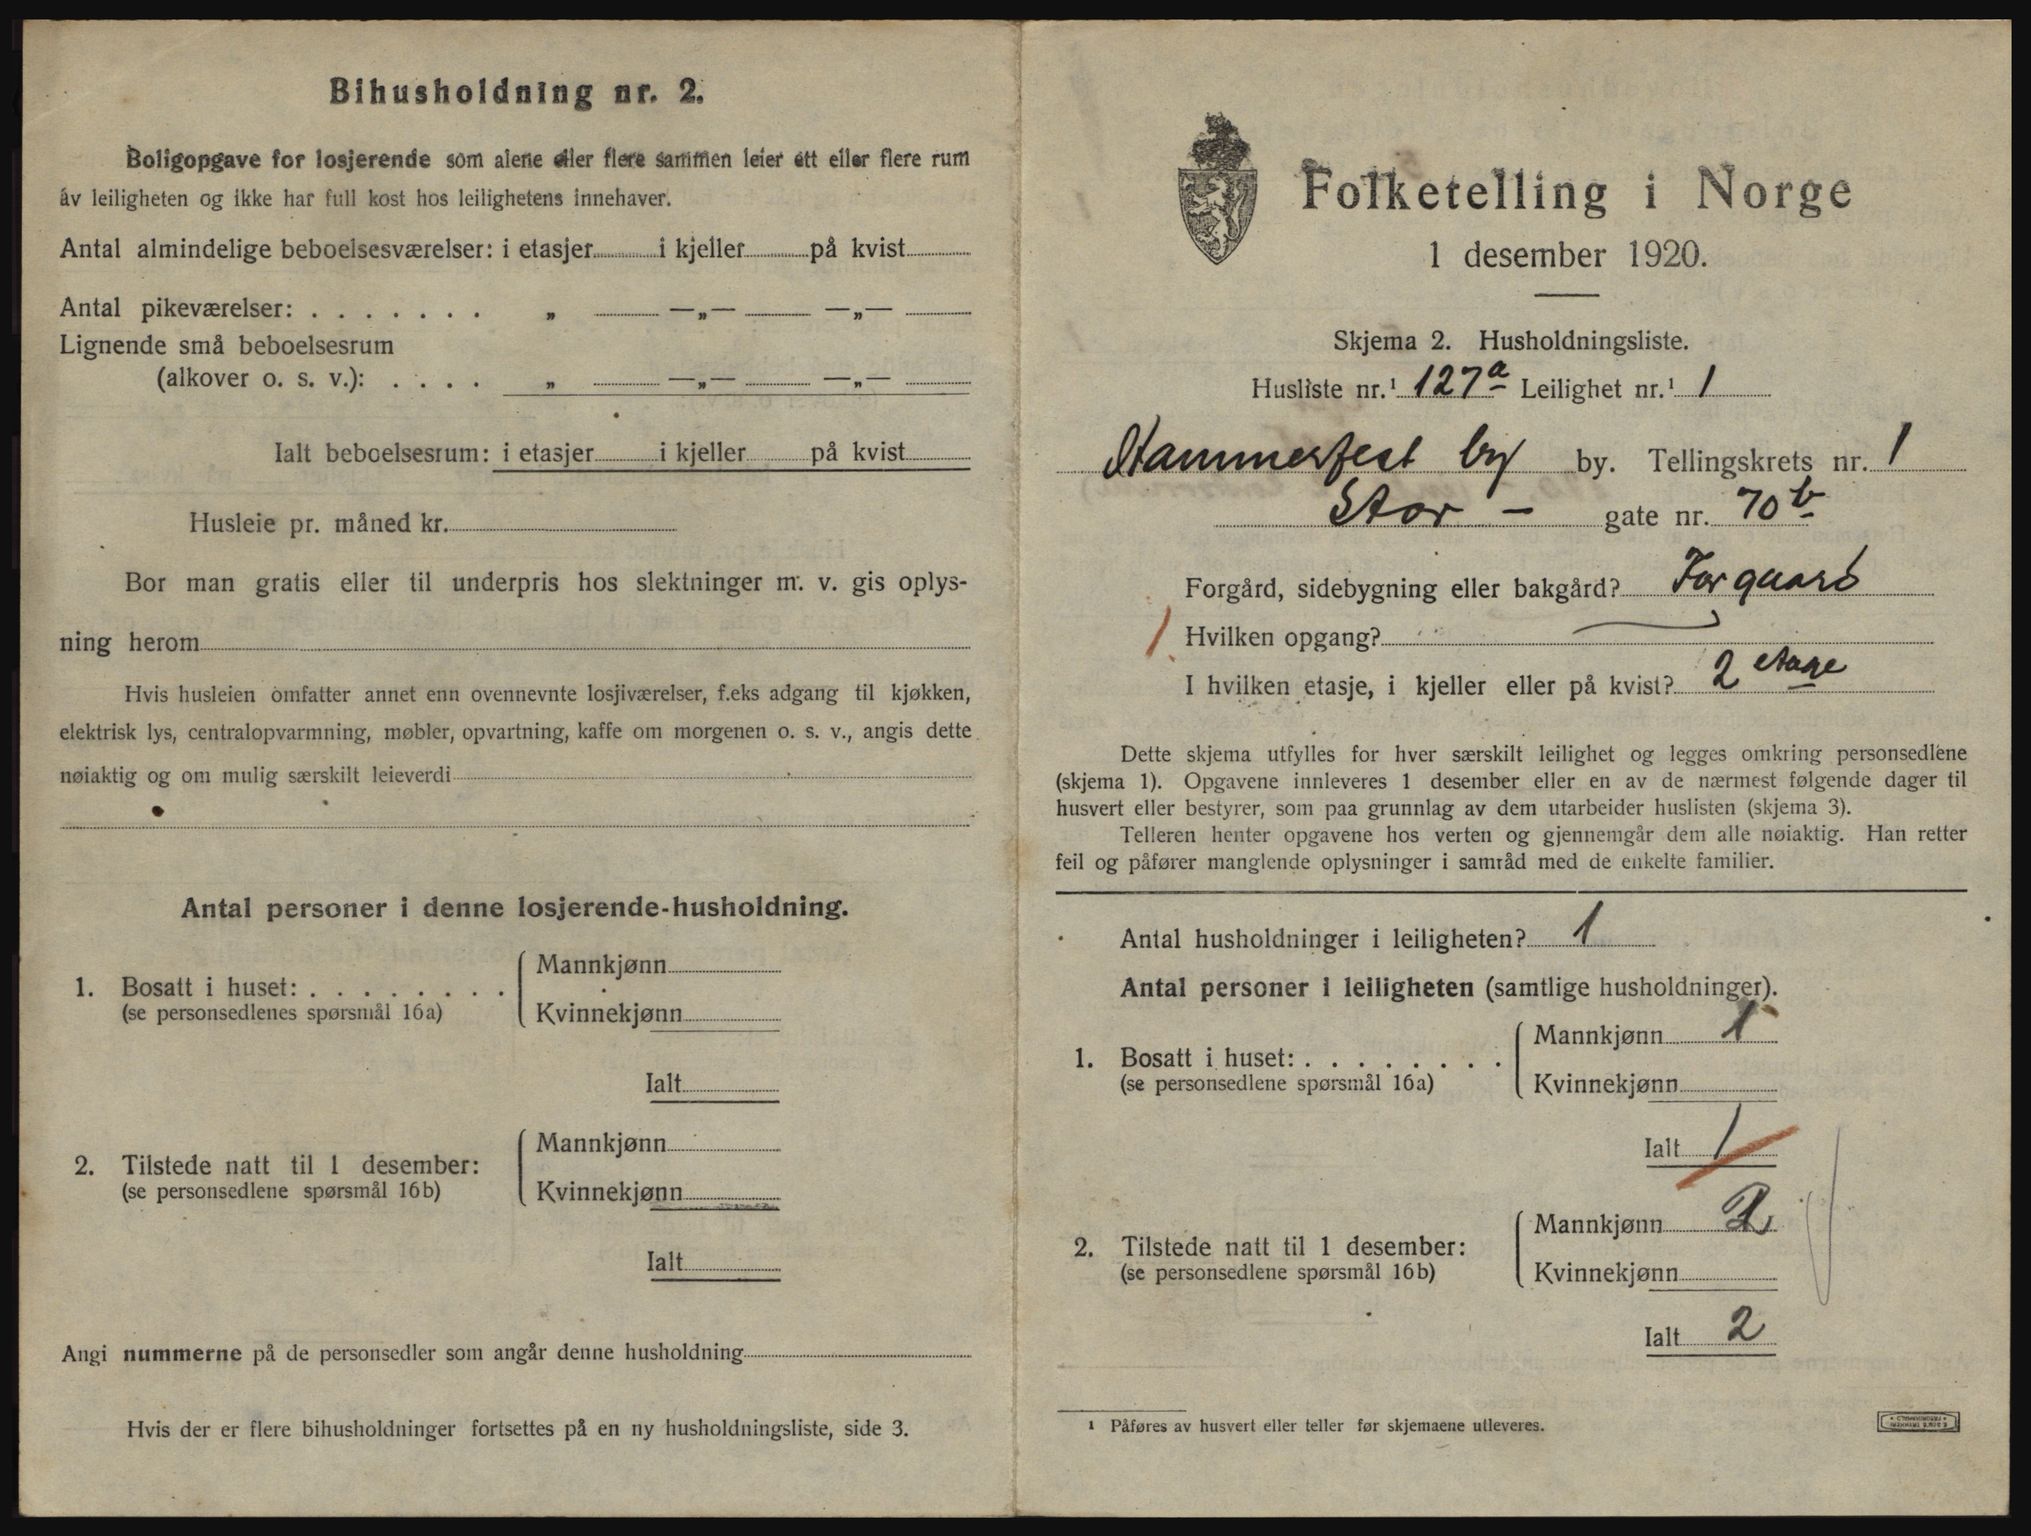 Bihusholdning nr. 2.
Boligopgave for losjerende som alene eller flere sammen leier ett eller flere rum
av leiligheten og ikke har full kost hos leilighetens innehaver.
Antal almindelige beboelsesværelser: i etasjer i kjeller på kvist
Antal pikeværelser: . . . . . . . „ —„— —„—
Lignende små beboelsesrum
(alkover o. s. v.): . . . . „ —„— —„—
Ialt beboelsesrum: i etasjer i kjeller på kvist
Husleie pr. måned kr.
Bor man gratis eller til underpris hos slektninger m. v. gis oplys-
ning herom
Hvis husleien omfatter annet enn ovennevnte losjiværelser, f.eks adgang til kjøkken,
elektrisk lys, centralopvarmning, møbler, opvartning, kaffe om morgenen o. s. v., angis dette
nøiaktig og om mulig særskilt leieverdi
Antal personer i denne losjerende-husholdning.
1. Bosatt i huset: . . . . . . . . Mannkjønn
(se personsedlenes spørsmål 16a) Kvinnekjønn
Ialt
2. Tilstede natt til 1 desember: Mannkjønn
(se personsedlene spørsmål 16b) Kvinnekjønn
Ialt
Angi nummerne på de personsedler som angår denne husholdning
Hvis der er flere bihusholdninger fortsettes på en ny husholdningsliste, side 3.
Folketelling i Norge
1 desember 1920.
Skjema 2. Husholdningsliste.
Husliste nr.¹ 127a Leilighet nr.¹ 1
Hammerfest by by. Tellingskrets nr. 1
Stor - gate nr. 70b
Forgård, sidebygning eller bakgård? Forgaard
1 Hvilken opgang?
I hvilken etasje, i kjeller eller på kvist? 2 etage
Dette skjema utfylles for hver særskilt leilighet og legges omkring personsedlene
(skjema 1). Opgavene innleveres 1 desember eller en av de nærmest følgende dager til
husvert eller bestyrer, som paa grunnlag av dem utarbeider huslisten (skjema 3).
Telleren henter opgavene hos verten og gjennemgår dem alle nøiaktig. Han retter
feil og påfører manglende oplysninger i samråd med de enkelte familier.
Antal husholdninger i leiligheten? 1
Antal personer i leiligheten (samtlige husholdninger).
1. Bosatt i huset: . . . . . . . . Mannkjønn 1
(se personsedlene spørsmål 16a) Kvinnekjønn
Ialt 1
2. Tilstede natt til 1 desember: Mannkjønn 2
(se personsedlene spørsmål 16b) Kvinnekjønn
Ialt 2
¹ Påføres av husvert eller teller før skjemaene utleveres.